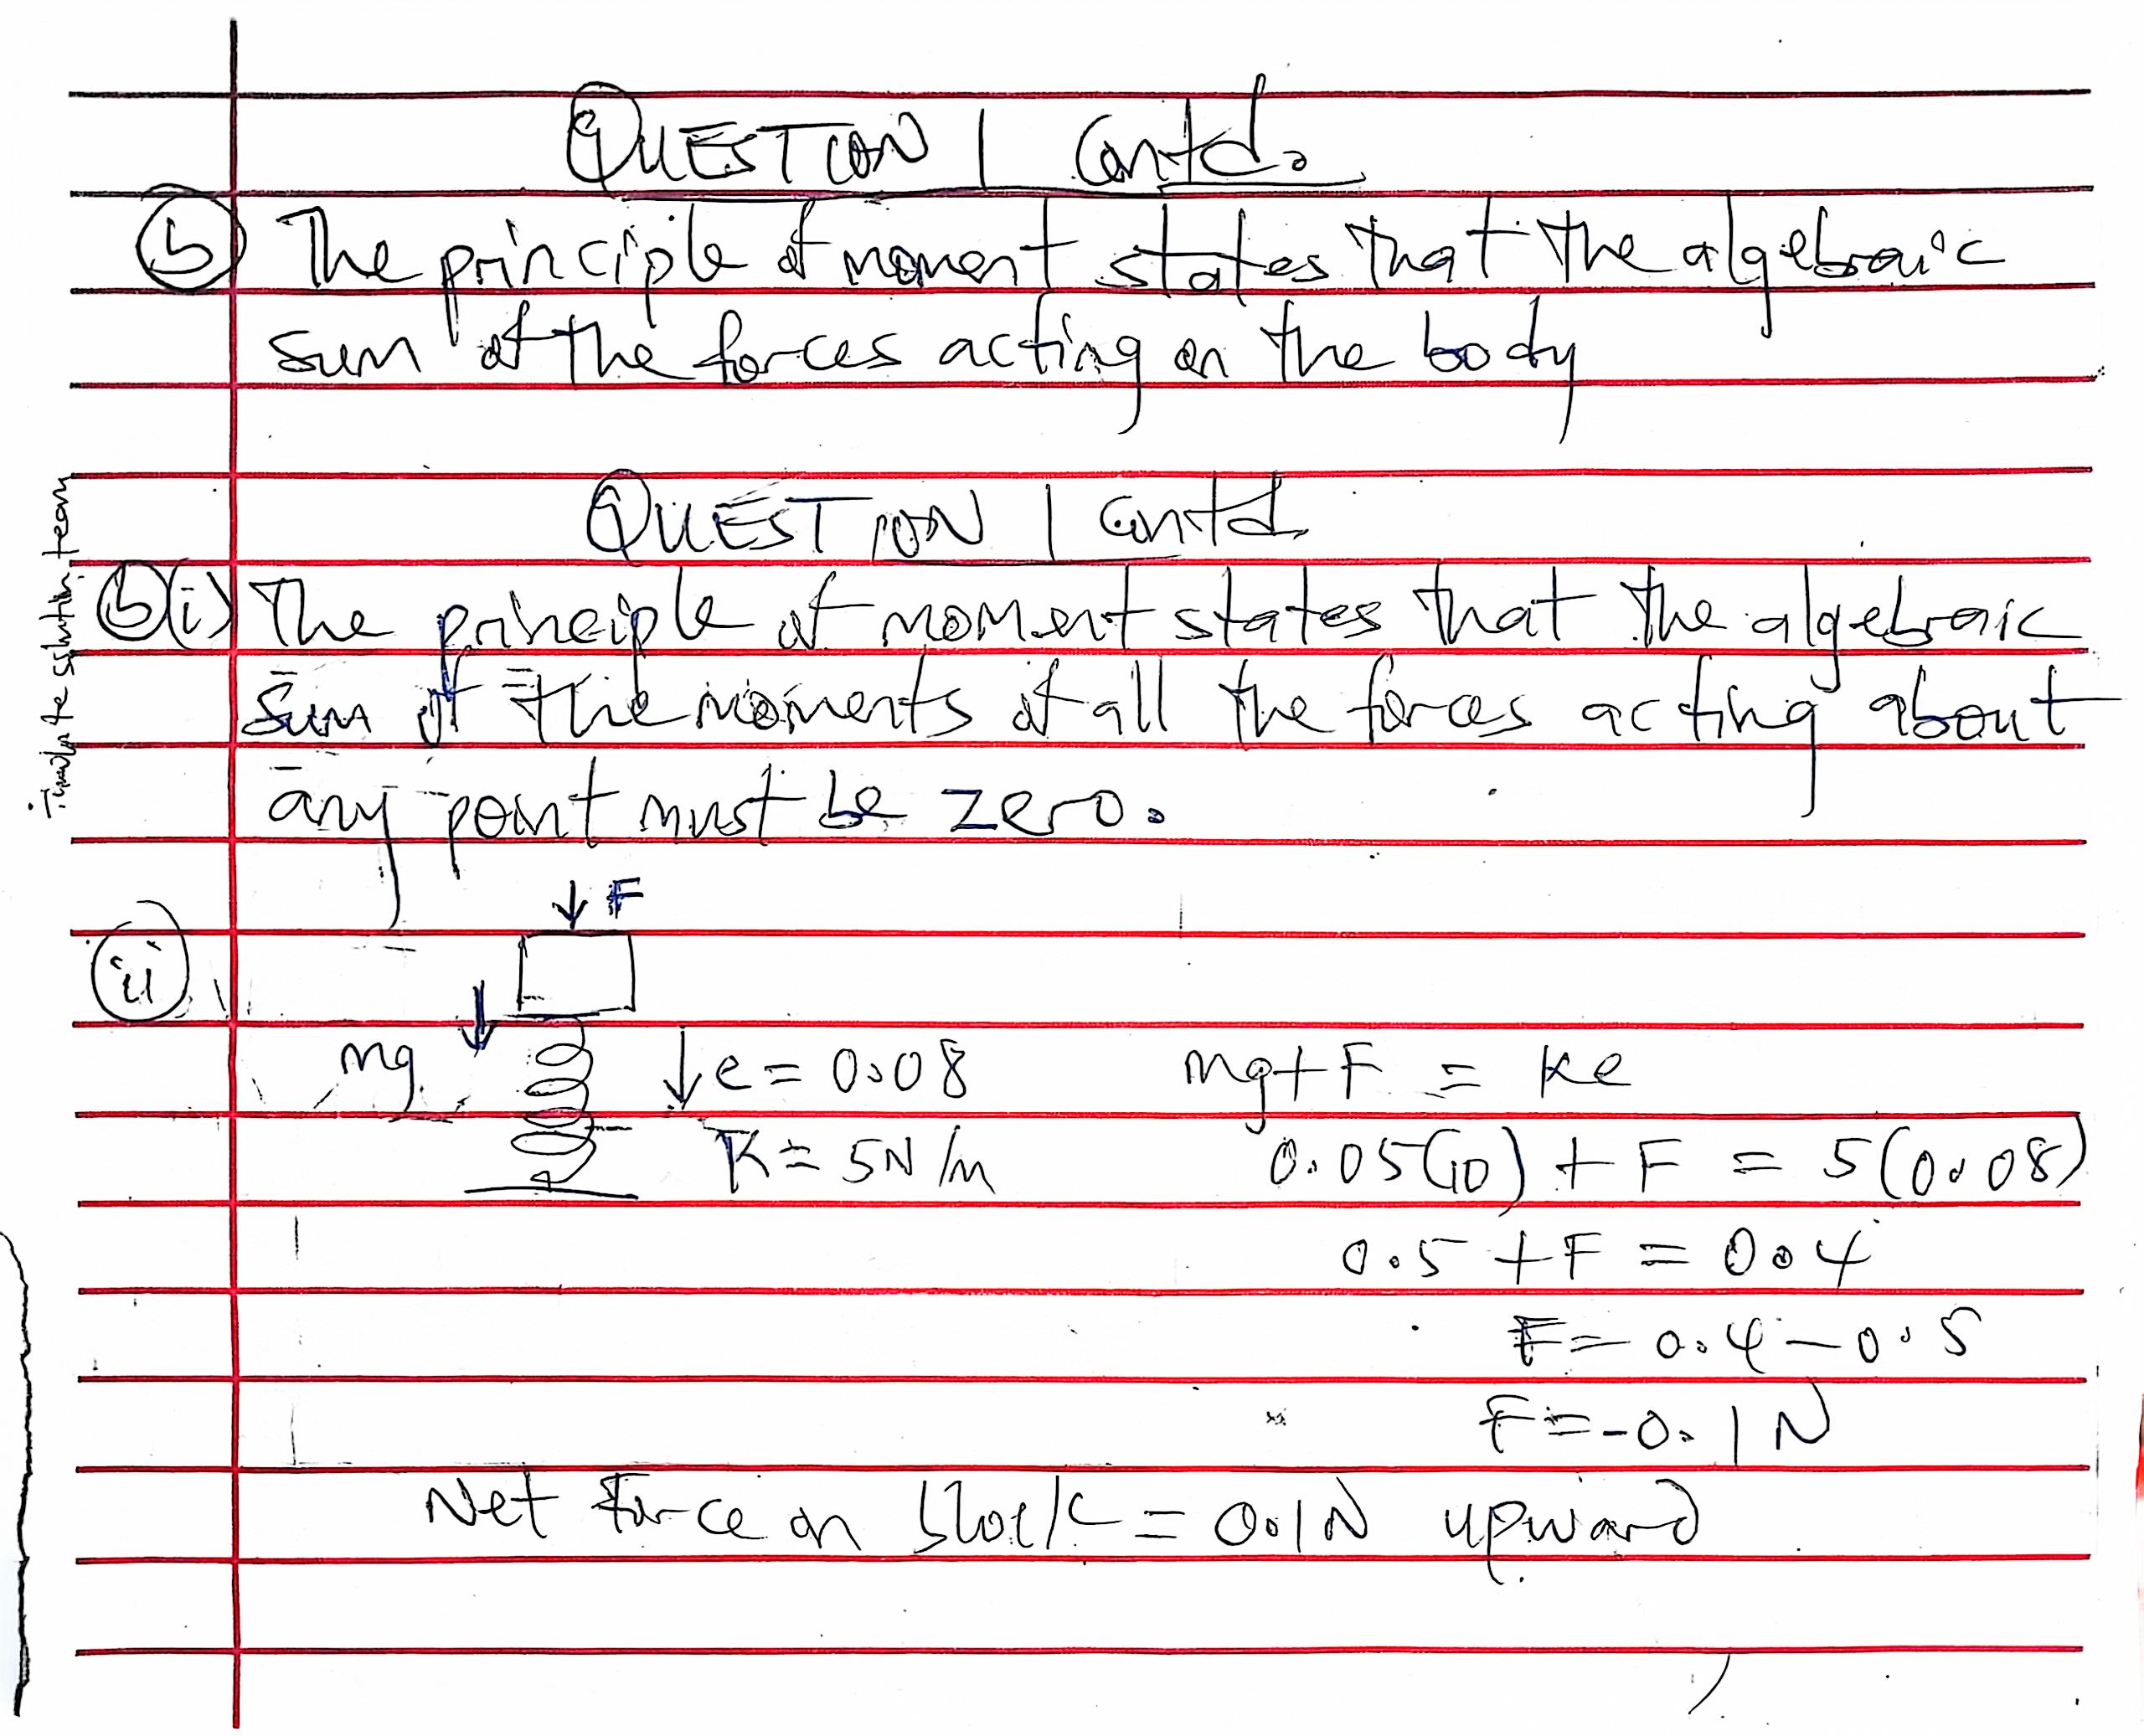 QUESTION 1 Contd.
b The principle of moment states that the algebraic
sum of the forces acting on the body
QUESTION 1 Contd.
b(i) The principle of moment states that the algebraic
sum of the moments of all the forces acting about
any point must be zero.
ii
↓ F
mg ↓ ↓e = 0.08 mg + F = Ke
K = 5N/m 0.05(10) + F = 5(0.08)
0.5 + F = 0.4
F = 0.4 - 0.5
F = -0.1N
Net Force on block = 0.1N upward
solution team